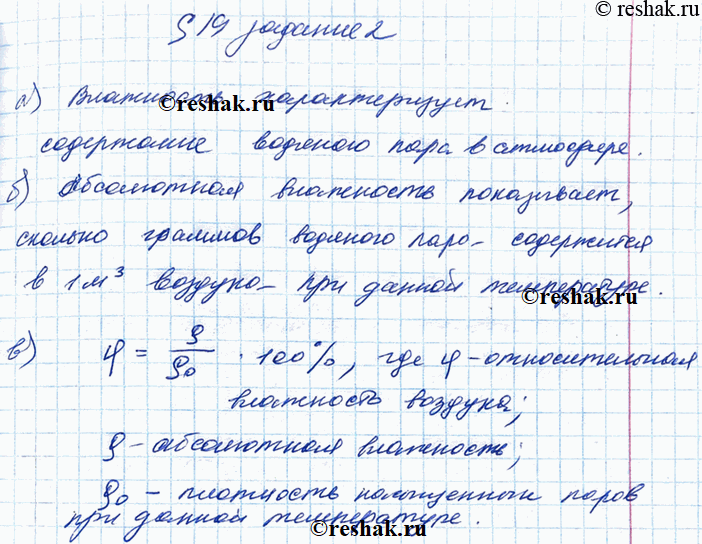 © reshak.ru
§ 19 задание 2
а) Влажность характеризует
© reshak.ru
содержание водяного пара в атмосфере.
б) Абсолютная влажность показывает,
сколько граммов водяного пара содержится
в 1 м³ воздуха при данной температуре.
© reshak.ru
в) φ = ρ/ρ₀ · 100%, где φ - относительная
влажность воздуха;
ρ - абсолютная влажность;
ρ₀ - плотность насыщенных паров
при данной температуре.
© reshak.ru